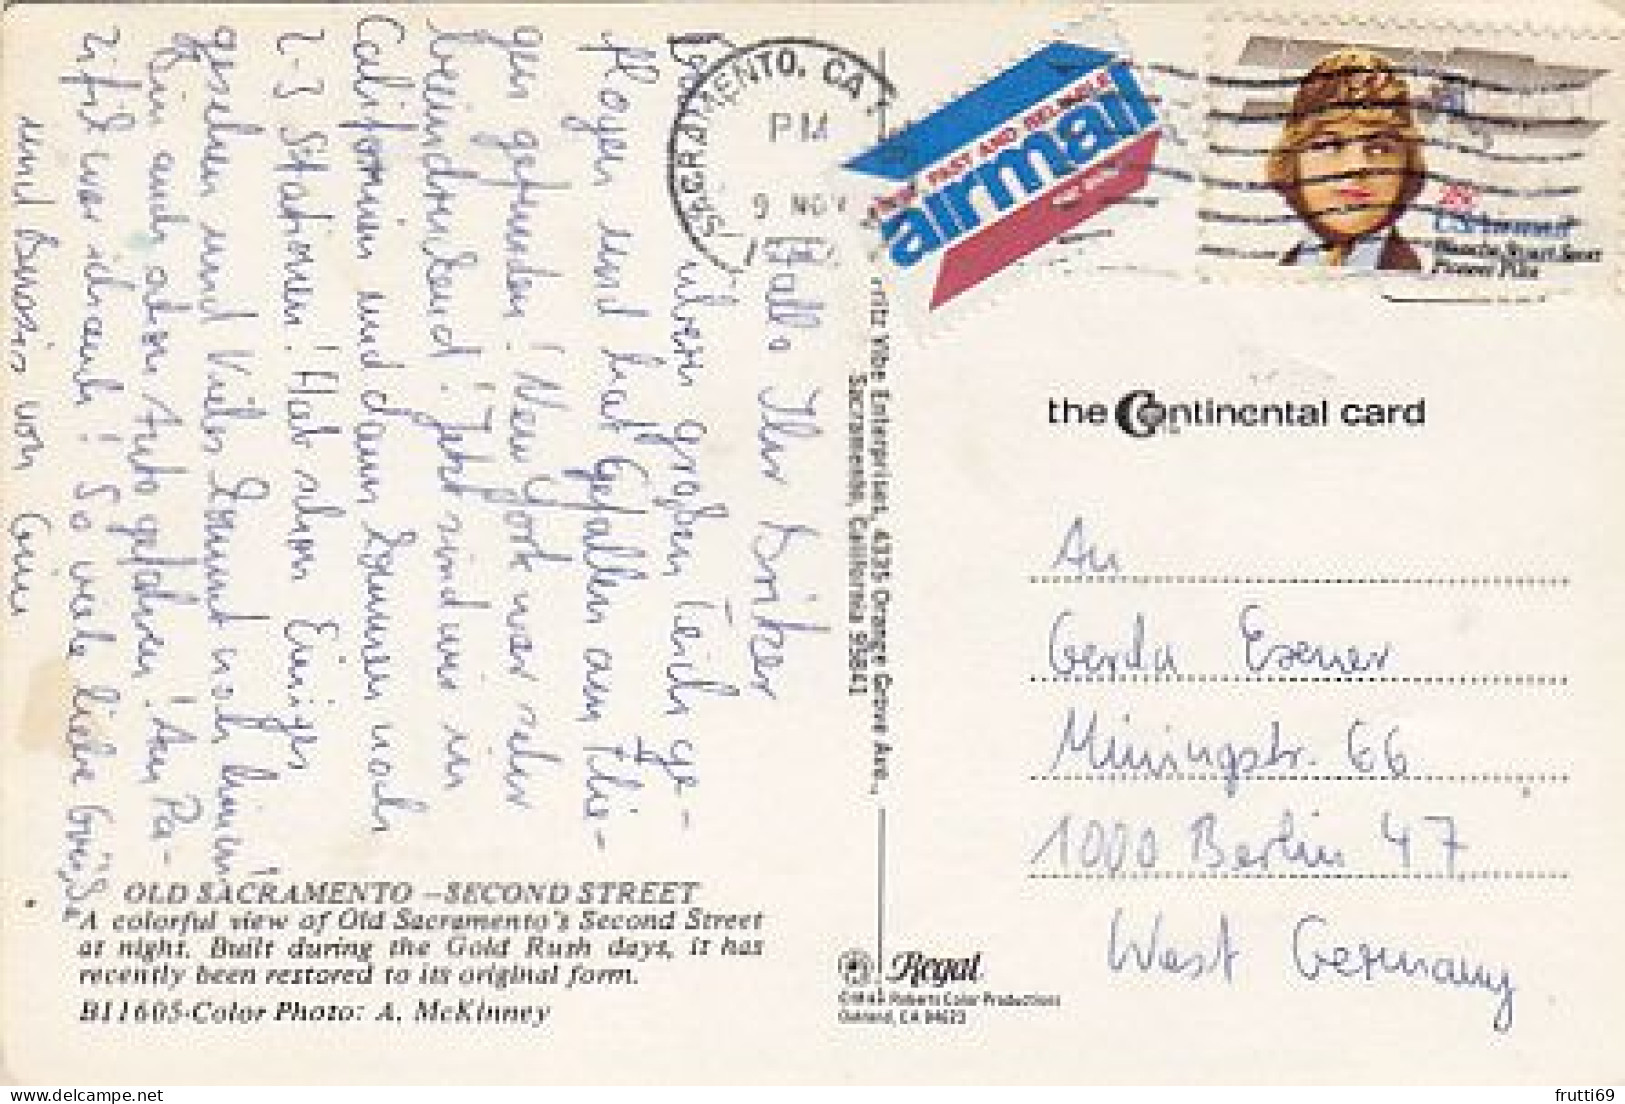 Hallo Ihr Dricker
über großen Teich ge-
flogen und hat Gefallen am Flie-
gen gefunden! New York war sehr
beeindruckend! Jetzt sind wir in
Californien und dann kommen noch
2-3 Stationen! Hab schon Einiges
gesehen und Vieles kommt noch hinein!
Bin auch schon Auto gefahren! Am Pa-
zifik war ich auch! So viele liebe Grüße
und Bussis von
SACRAMENTO, CA
PM
9 NOV
FAST AND RELIABLE
airmail
USAirmail
Blanche Stuart Scott
Pioneer Pilot
Fritz Vibe Enterprises, 4335 Orange Grove Ave.,
Sacramento, California 95841
the Continental card
An
Gerda Exener
Miningstr. 66
1000 Berlin 47
West Germany
OLD SACRAMENTO — SECOND STREET
A colorful view of Old Sacramento's Second Street
at night. Built during the Gold Rush days, it has
recently been restored to its original form.
B11605-Color Photo: A. McKinney
Regal
Roberts Color Productions
Oakland, CA 94623
frutti69